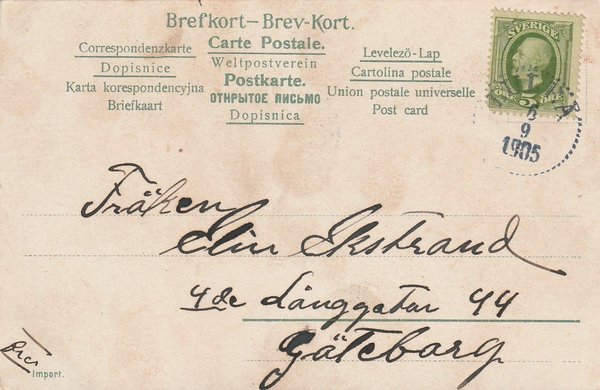 Brefkort–Brev-Kort.
Correspondenzkarte
Dopisnice
Karta korespondencyjna
Briefkaart
Carte Postale.
Weltpostverein
Postkarte.
ОТКРЫТОЕ ПИСЬМО
Dopisnica
Levelező-Lap
Cartolina postale
Union postale universelle
Post card
SVERIGE
5
9
1905
Fröken
Elin Ekstrand
4de Långgatan 44
Göteborg
Import.